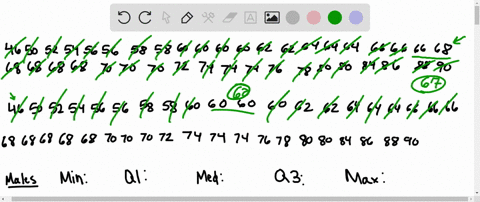 46 50 52 54 56 56 58 58 60 60 60 60 62 62 64 64 64 66 66 66 68
68 68 68 68 70 70 70 72 74 74 74 76 78 80 80 84 86 88 90
67
46 50 52 54 56 56 58 58 60 60 60 60 62 62 64 64 64 66 66 66
68 68 68 68 68 70 70 70 72 74 74 74 76 78 80 80 84 86 88 90
Males Min: Q1: Med: Q3: Max: